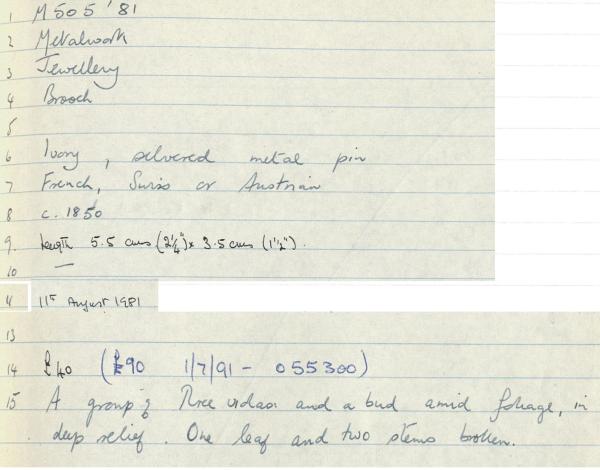 1 M505 '81
2 Metalwork
3 Jewellery
4 Brooch
5
6 Ivory, silvered metal pin
7 French, Swiss or Austrian
8 c. 1850
9. length 5.5 cms (2¼")x 3.5 cms (1½").
10 —
11 11th August 1981
13
14 £40 (£90 1/7/91 - 055300)
15 A group of three and a bud amid foliage, in
deep relief. One leaf and two stems broken.